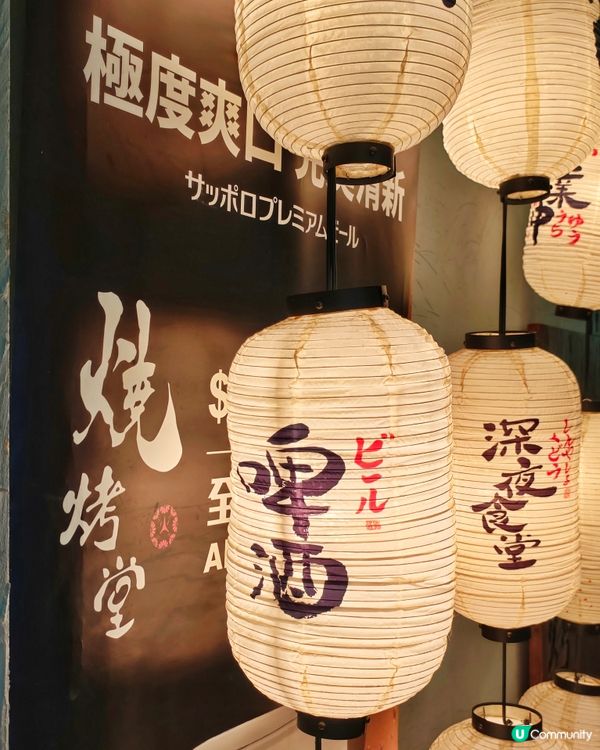 極度爽口
清新
サッポロプレミアムビール
燒烤堂
$
至
啤酒
ビール
深夜食堂
しんやしょくどう
U Community